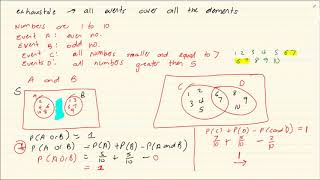 exhaustive → all events cover all the elements
Numbers are 1 to 10
Event A: even no.
Event B: odd no.
Event C: all numbers smaller and equal to 7
Event D: all numbers greater than 5
1 2 3 4 5 6 7
6 7 8 9 10
A and B
S
A
B
C
D
1 2
3 4
5
6
7
8
9
10
P(A or B) = 1
P(A or B) = P(A) + P(B) - P(A and B)
P(A or B) = 5/10 + 5/10 - 0
= 1
P(C) + P(D) - P(C and D) = 1
7/10 + 5/10 - 2/10
1